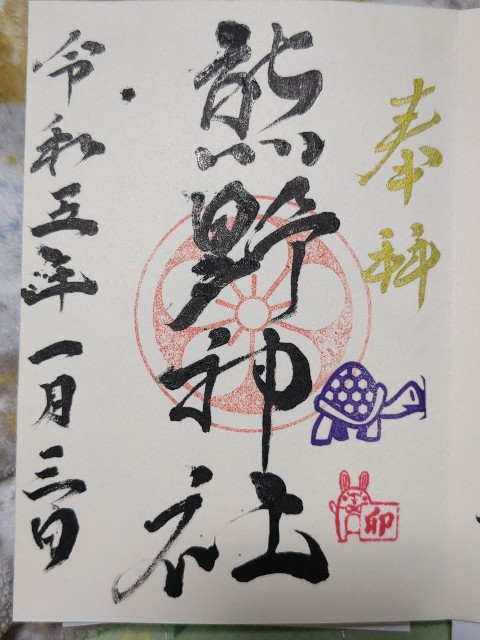 奉拝
熊野神社
卯
令和五年一月三日